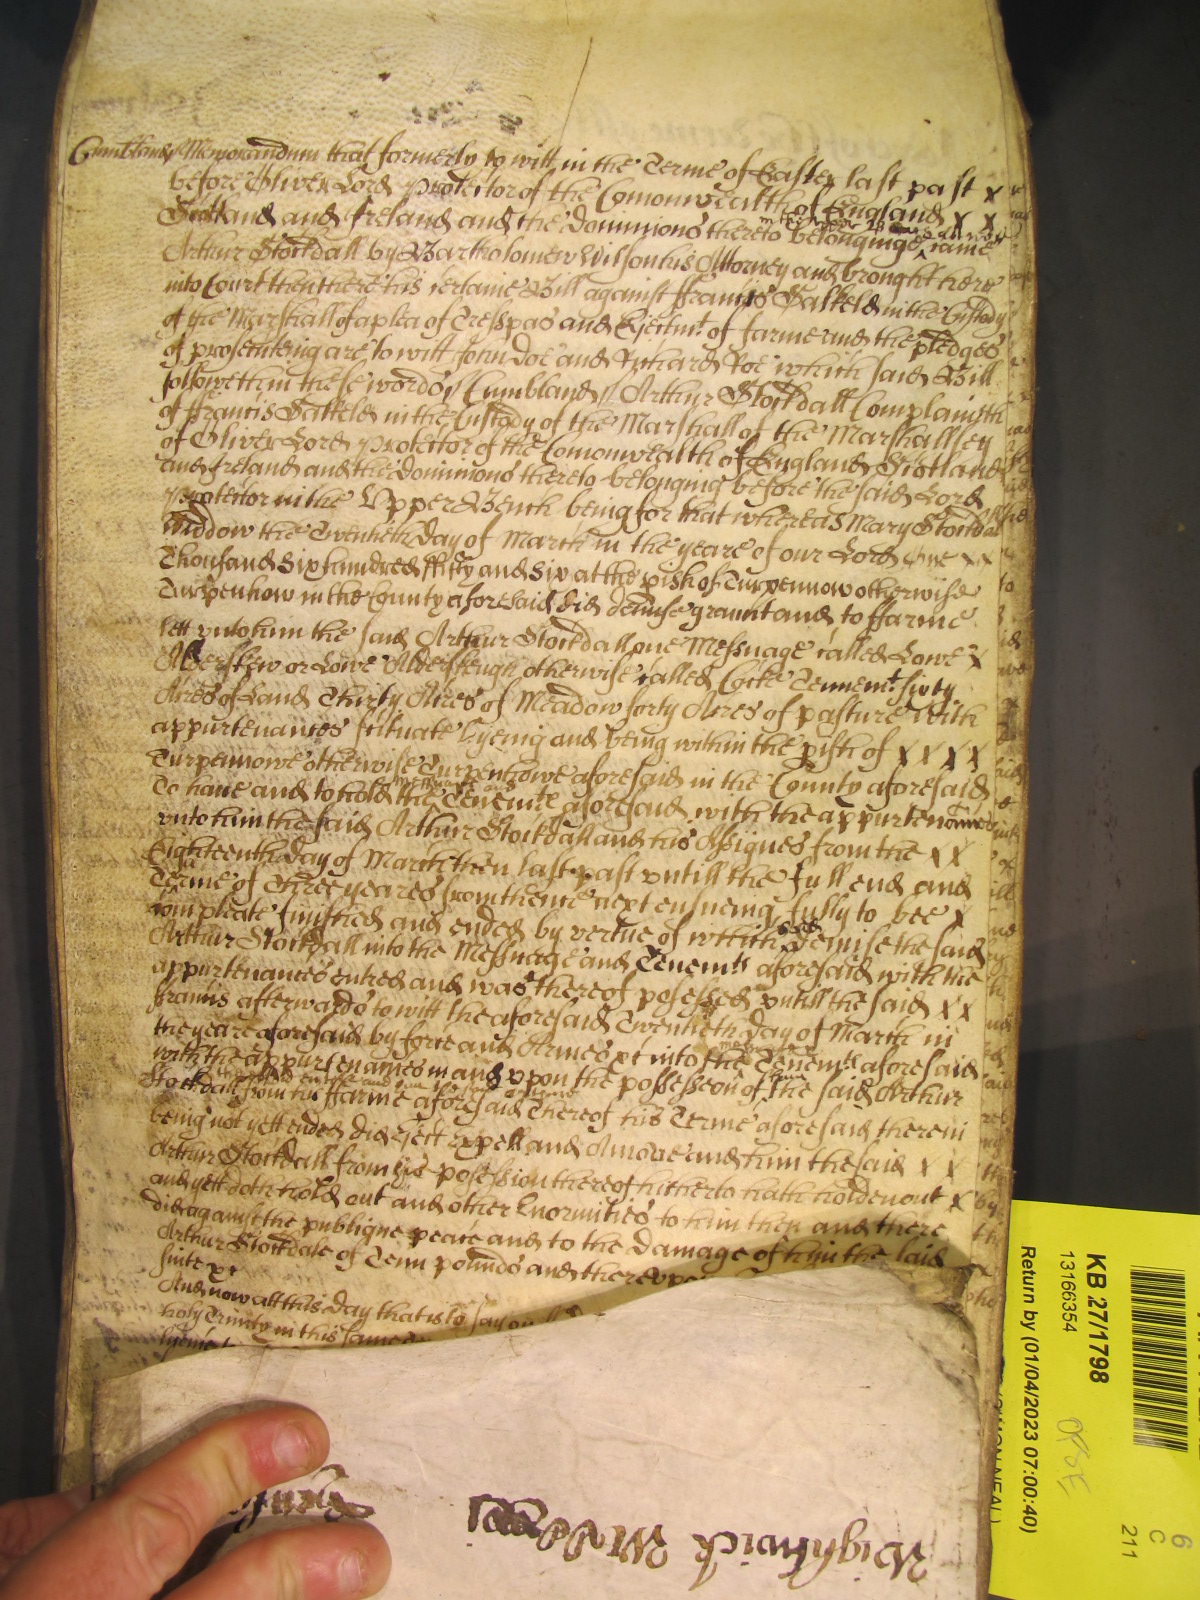 Cumbland// Memorandum that formerly to witt in the Terme of Easter last past x
before Oliver Lord protector of the Comonwealth of England x x
Scotland and Ireland and the dominions thereto belonginge came
Arthur Stockdall by Bartholomew Wilson his Attorney and brought here
into Court then there his certaine Bill against ffrancis Salkeld in the Custody
of the Marshall of a plea of Trespas and Ejectmt. of farme and the pledges
of prosecuting are to witt John Doe and Richard Roe which said Bill
followeth in these words// Cumbland// Arthur Stockdall Complaineth
of ffrancis Salkeld in the Custody of the Marshall of the Marshallsey
of Oliver Lord protector of the Comonwealth of England Scotland
and Ireland and the dominions thereto belonging before the said Lord
Protector in the Upper Bench being for that whereas Mary Stockdall
widdow the Twentieth day of March in the yeare of our Lord One x x
Thousand Six hundred ffifty and Six at the pish of Turpennow otherwise
Turpenhow in the County aforesaid did demise graunt and to ffarme
lett unto him the said Arthur Stockdall one Messuage called Lowe x
Alderskew or Lowe Alderskeugh otherwise called Cocke Tennemt. sixty
Acres of Land Thirty Acres of Meadow forty Acres of pasture with
appurtenances scituate Lyeing and being within the pish of x x x x
Turpennowe otherwise Turpenhowe aforesaid in the County aforesaid
To have and to hold the Tenemts aforesaid with the appurtenances
unto him the said Arthur Stockdall and his Assignes from the x x
Eighteenth day of March then last past untill the full end and
Terme of Three yeares from thence next ensueing fully to bee x
compleate finished and ended by vertue of which said demise the said
Arthur Stockdall into the Messuage and Tenemts aforesaid with the
appurtenances entred and was thereof posessed untill the said x x
ffrancis afterwards to witt the aforesaid Twentieth day of March in
the yeare aforesaid by force and Armes &c into the Tenemts aforesaid
with the appurtenances in and upon the possession of the said Arthur
Stockdall from his ffarme aforesaid Thereof his Terme aforesaid therein
being not yett ended did Eject expell and Amove and him the said x x
Arthur Stockdall from his possession thereof hitherto hath holden out x
and yett doth hold out and other Enormities to him then and there
did against the publique peace and to the damage of him the said
Arthur Stockdale of Tenn pounds and thereupon
suite &c
And now att this day that is to say on
holy Trinity in this same
Wightwick
KB 27/1798
13166354
Return by (01/04/2023 07:00:40)
6
C
211